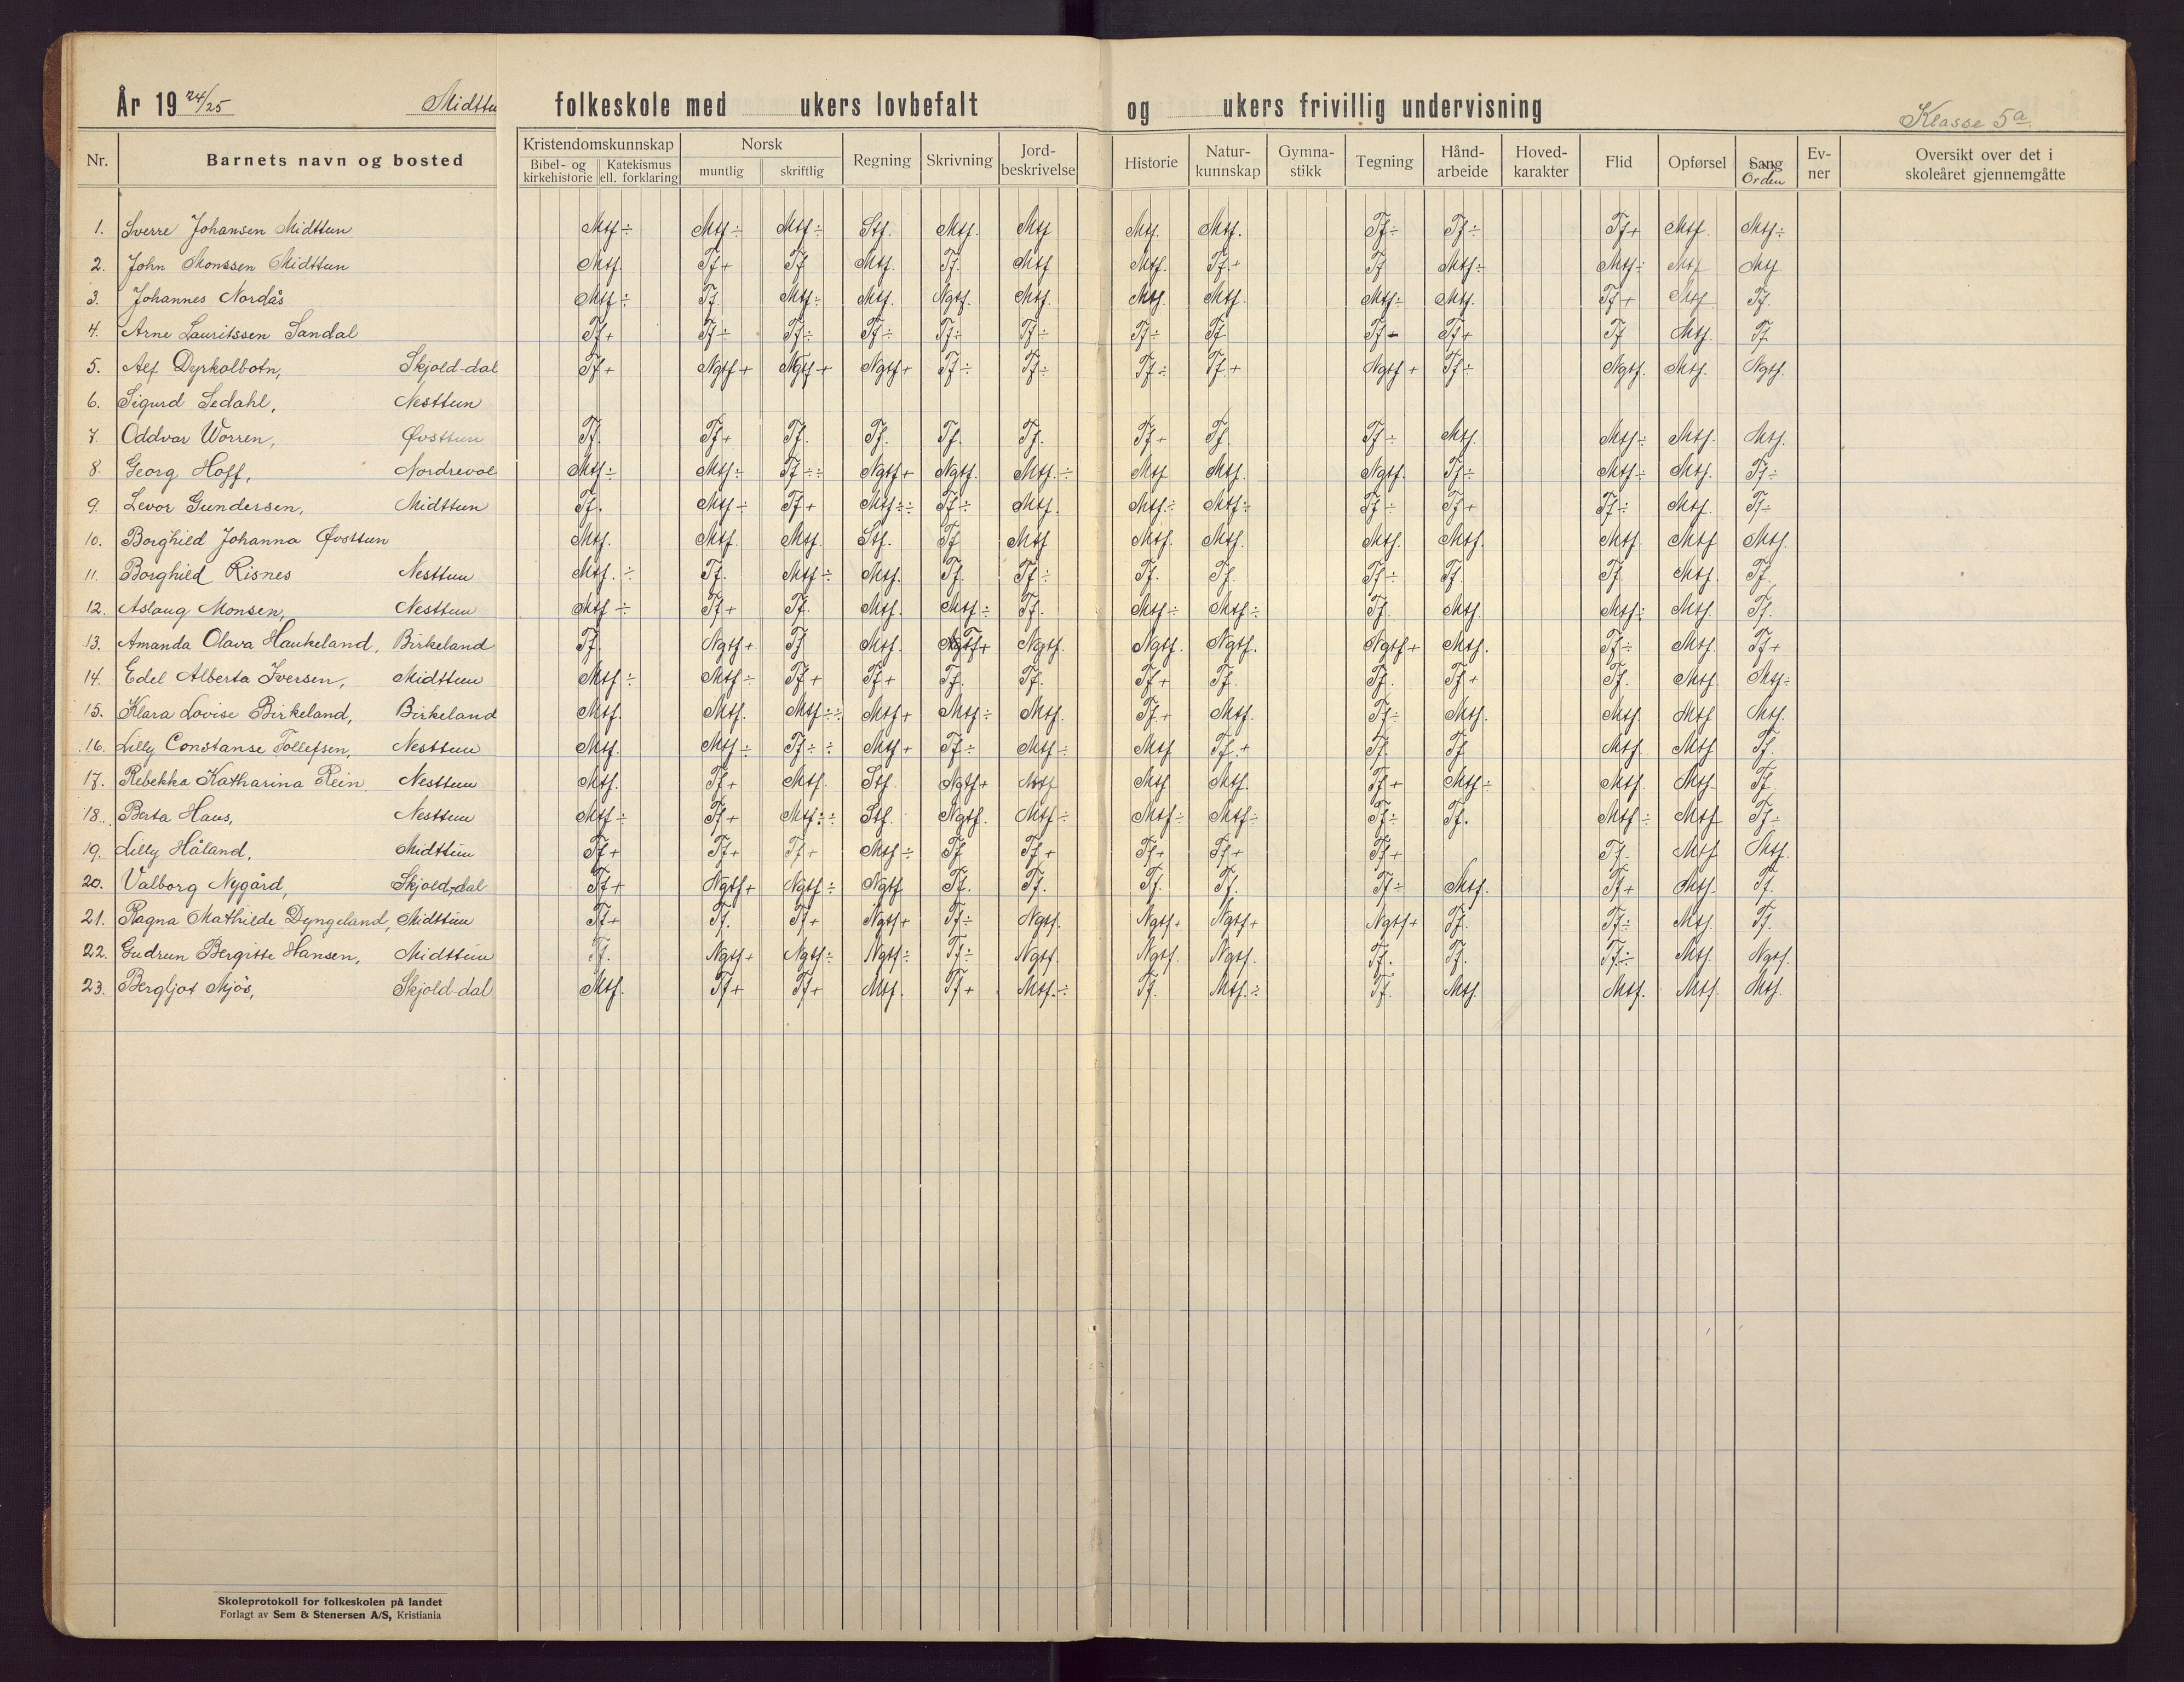 År 19 24/25 Midttu folkeskole med ukers lovbefalt og ukers frivillig undervisning Klasse 5a
Nr. Barnets navn og bosted Kristendomskunnskap Bibel- og kirkehistorie Katekismus ell. forklaring Norsk muntlig skriftlig Regning Skrivning Jord-beskrivelse Historie Natur-kunnskap Gymna-stikk Tegning Hånd-arbeide Hoved-karakter Flid Opførsel Sang Orden Ev-ner Oversikt over det i skoleåret gjennemgåtte
1. Sverre Johansen Midttun Mtf÷ Mtf÷ Mtf÷ Stf. Mtf. Mtf Mtf. Mtf. Tf÷ Tf÷ Tf+ Mtf. Mtf÷
2. John Monssen Midttun Mtf. Tf+ Tf Mtf. Tf. Mtf Mtf. Tf.+ Tf Mtf÷ Mtf÷ Mtf Mtf
3. Johannes Nordås Mtf÷ Tf. Mtf÷ Mtf. Ngtf. Mtf. Mtf. Mtf. Mtf÷ Mtf. Tf+ Mtf Tf.
4. Arne Lauritssen Sandal Tf+ Tf÷ Tf÷ Tf÷ Tf÷ Tf÷ Tf÷ Tf Tf- Tf+ Tf Mtf. Tf
5. Alf Dyrkolbotn, Skjold-dal Tf+ Ngtf+ Ngtf+ Ngtf+ Tf÷ Tf÷ Tf÷ Tf.+ Ngtf+ Tf÷ Ngtf. Mtf. Ngtf.
6. Sigurd Sedahl, Nesttun
7. Oddvar Worren, Øvsttun Tf. Tf+ Tf. Tf. Tf. Tf. Tf+ Tf. Tf÷ Mtf. Mtf÷ Mtf. Mtf.
8. Georg Hoff, Nordrevol Mtf÷ Mtf÷ Tf÷÷ Ngtf+ Ngtf. Mtf.÷ Mtf Mtf. Ngtf. Tf÷ Mtf÷ Mtf. Tf÷
9. Levor Gundersen, Midttun Tf. Mtf÷ Tf+ Mtf÷÷ Tf÷ Mtf. Mtf÷ Mtf÷ Tf÷ Tf+ Tf÷ Mtf. Tf÷
10. Borghild Johanna Øvsttun Mtf. Mtf. Mtf. Stf. Tf Mtf Mtf. Mtf. Mtf. Mtf. Mtf. Mtf Mtf.
11. Borghild Risnes Nesttun Mtf.÷ Tf. Mtf÷ Mtf. Tf. Tf÷ Tf. Tf. Tf÷ Tf. Tf. Mtf. Tf.
12. Aslaug Monsen, Nesttun Mtf÷ Tf+ Tf. Mtf. Mtf÷ Tf. Mtf÷ Mtf÷ Tf. Mtf. Mtf÷ Mtf. Tf.
13. Amanda Olava Haukeland, Birkeland Tf. Ngtf+ Tf Mtf. Tf+ Ngtf. Ngtf. Ngtf. Ngtf+ Mtf. Tf÷ Mtf. Tf+
14. Edel Alberta Iversen, Midttun Mtf÷ Mtf÷ Tf+ Tf+ Tf. Tf. Tf+ Tf. Tf. Tf+ Tf. Mtf. Mtf÷
15. Klara Lovise Birkeland, Birkeland Mtf. Mtf. Mtf÷÷ Mtf+ Mtf÷ Mtf. Tf+ Mtf. Tf÷ Mtf. Mtf. Mtf Mtf.
16. Lilly Constanse Tollefsen, Nesttun Mtf. Mtf÷ Tf÷÷ Mtf+ Tf÷ Mtf÷ Mtf Tf.+ Tf. Tf. Mtf. Mtf Tf.
17. Rebekka Katharina Rein Nesttun Mtf. Tf+ Mtf. Stf. Ngtf+ Mtf Mtf Mtf. Tf+ Mtf÷ Mtf. Mtf. Tf
18. Berta Haus, Nesttun Mtf÷ Tf+ Mtf÷÷ Stf. Ngtf. Mtf÷ Mtf÷ Mtf÷ Tf÷ Tf. Mtf÷ Mtf Tf÷
19. Lilly Håland, Midttun Tf+ Tf+ Tf+ Mtf÷ Tf Tf+ Tf+ Tf+ Tf+ Tf. Mtf Mtf.
20. Valborg Nygård, Skjold-dal Tf+ Ngtf+ Ngtf÷ Ngtf Tf. Tf. Tf. Tf. Tf÷ Mtf. Tf+ Mtf. Tf.
21. Ragna Mathilde Dyngeland, Midttun Tf+ Tf. Tf+ Ngtf+ Tf÷ Ngtf. Ngtf+ Ngtf+ Ngtf+ Tf. Tf÷ Mtf. Tf.
22. Gudrun Bergitte Hansen, Midttun Tf. Ngtf+ Ngtf÷ Ngtf÷ Tf÷ Ngtf. Ngtf. Ngtf. Tf. Tf. Tf÷ Mtf. Ngtf.
23. Bergljot Mjøs, Skjold-dal Mtf. Tf+ Tf+ Mtf. Tf+ Mtf÷ Tf. Mtf.÷ Tf. Mtf. Mtf. Mtf. Mtf.
Skoleprotokoll for folkeskolen på landet
Forlagt av Sem & Stenersen A/S, Kristiania